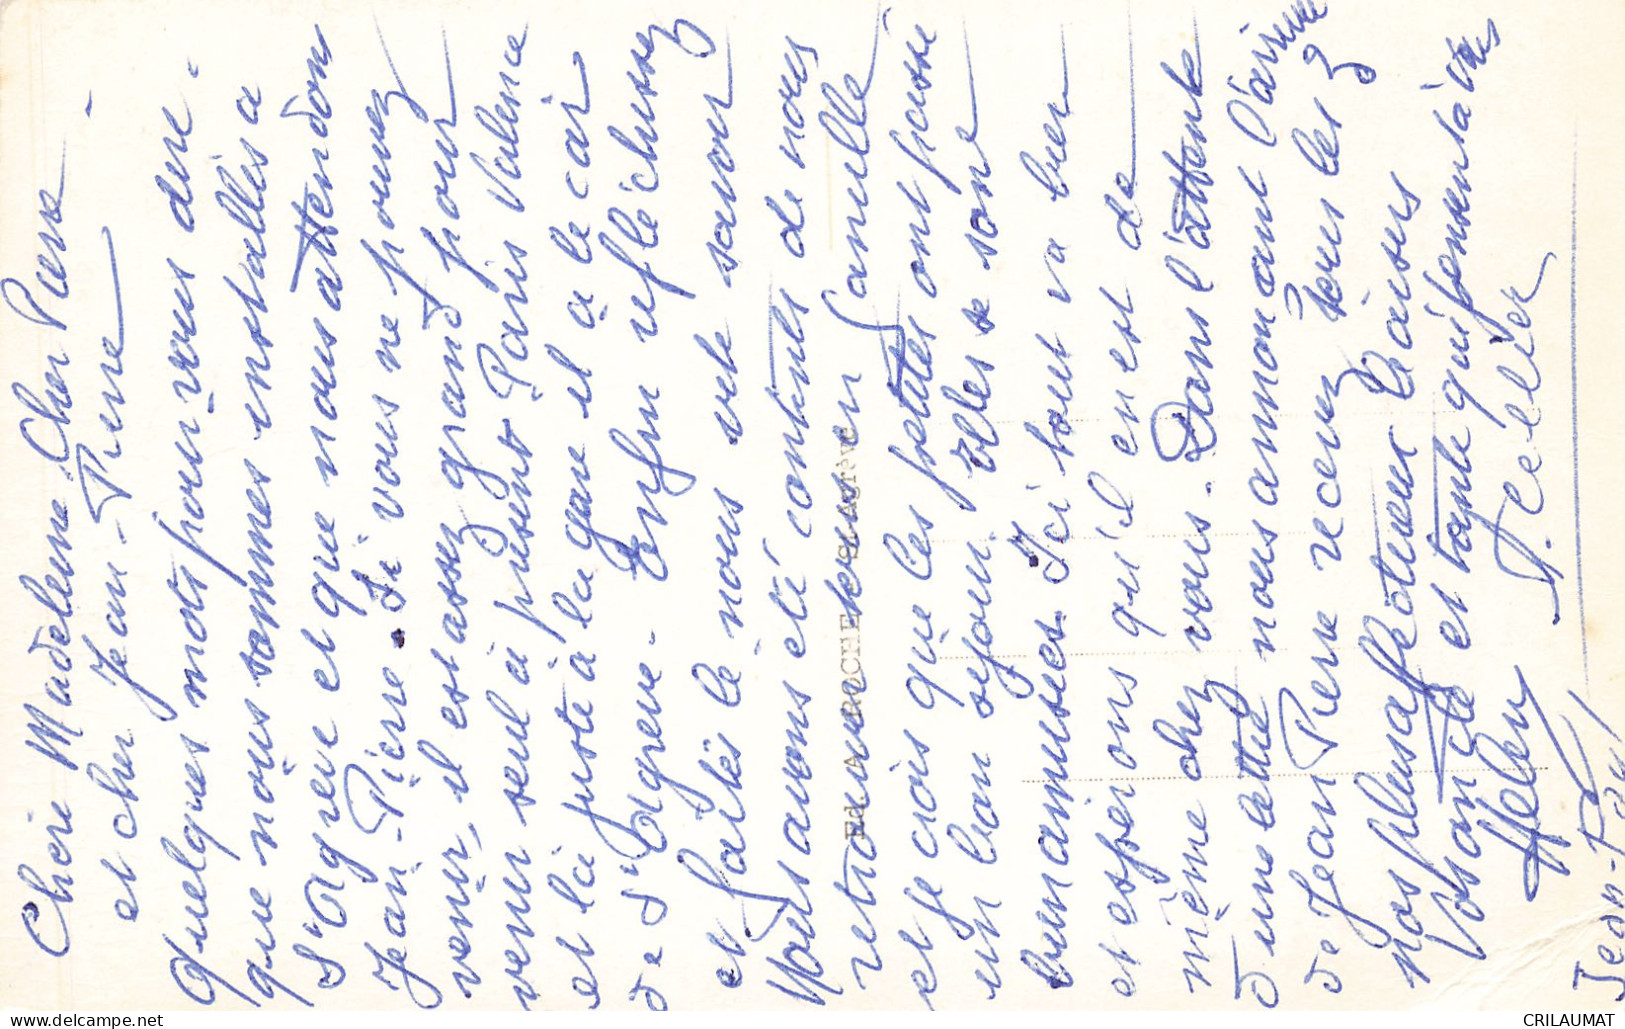 Chère Madeleine. Cher Pierre
et cher Jean-Pierre
Quelques mots pour vous dire
que nous sommes installés a
St Agreve et que nous attendons
Jean-Pierre. Si vous ne pouvez
venir, il est assez grand pour
venir seul à présent Paris Valence
et là juste à la gare il a le car
de St Agreve. Enfin réfléchissez
et faites le nous vite savoir
Nous avons été contents de nous
retrouver en famille
et je crois que les petites ont passé
un bon séjour. Elles se sont
bien amusées. Ici tout va bien
et espérons qu'il en est de
même chez vous. Dans l'attente
d'une lettre nous annonçant l'arrivée
de Jean Pierre recevez tous les 3
nos plus affectueux baisers
Vos ancle et tante qui pensent à vous
Helen A. Cellier
Jean-Pau
Ed. A. ROCHE St-Agrève
CRILAUMAT